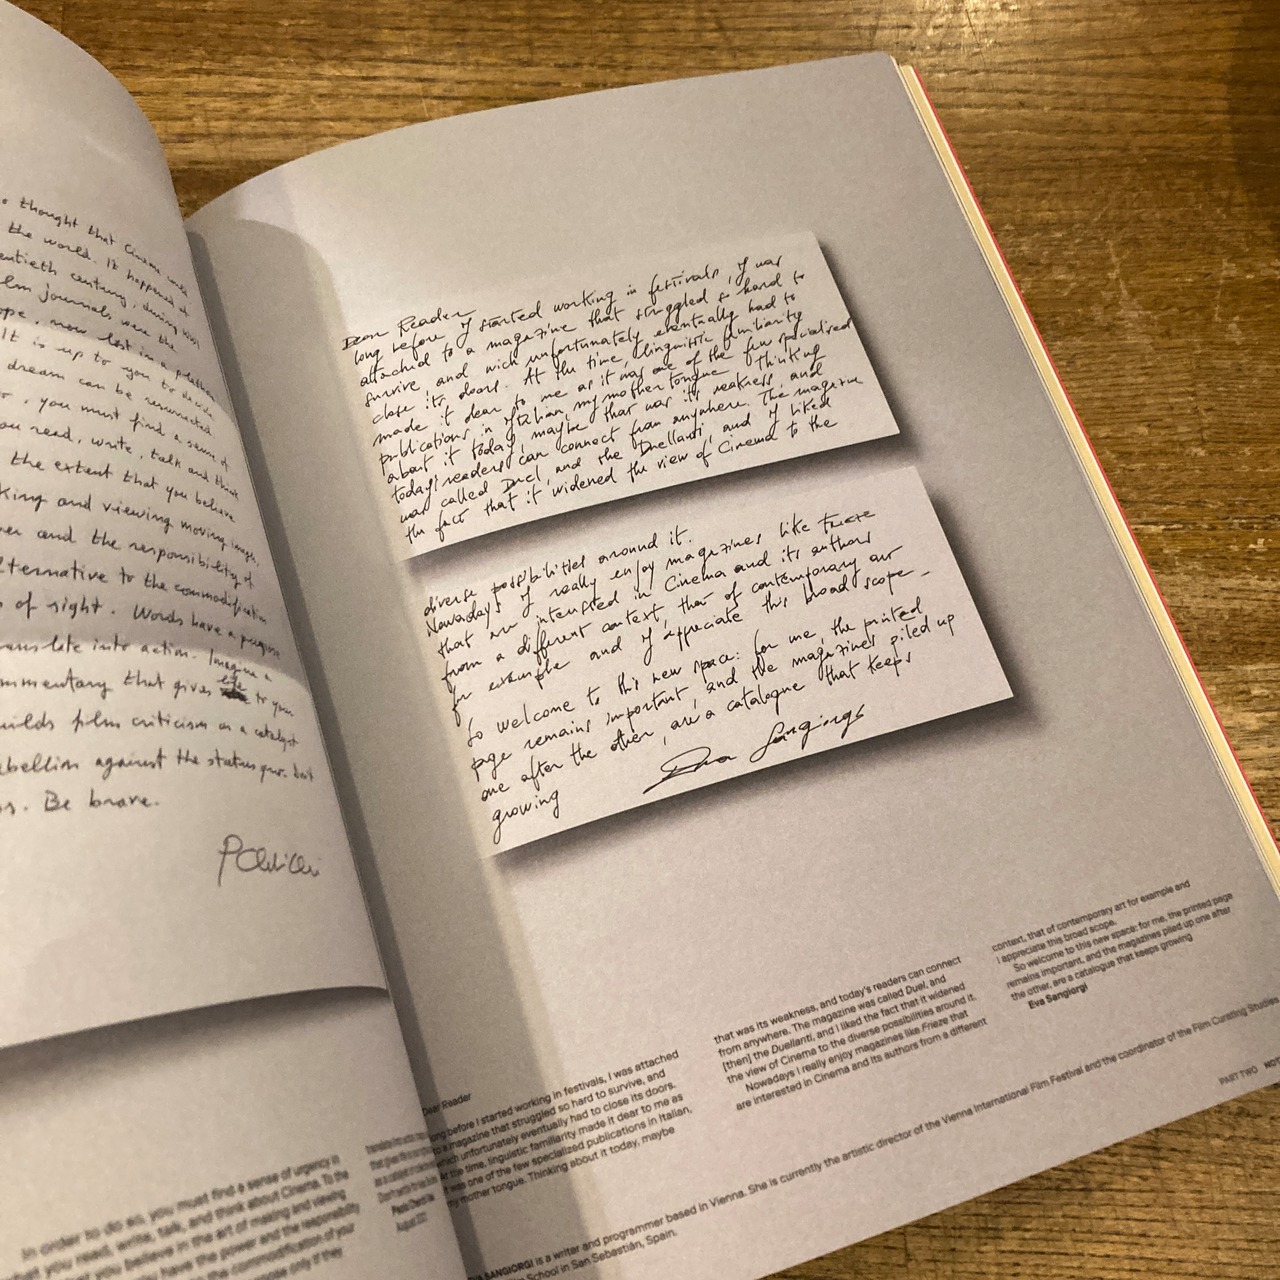 thought that Cinema could
the world. It happened at
entieth century, during which
lm journals were the
ope, now lost in a
It is up to you to decide
dream can be resurrected
, you must find a sense of
ou read, write, talk and think
the extent that you believe
king and viewing moving images,
er and the responsibility of
lternative to the commodification
of sight. Words have a purpose
translate into action. Imagine a
mmentary that gives to your
uilds film criticism as a catalyst
ebellion against the status quo. but
s. Be brave.
In order to do so, you must find a sense of urgency in
what you read, write, talk, and think about Cinema. To the
you believe in the art of making and viewing
have the power and the responsibility
the commodification of your
purpose only if they
Dear Reader
long before I started working in festivals, I was
attached to a magazine that struggled so hard to
survive, and wich unfortunately eventually had to
close its doors. At the time, linguistic familiarity
made it dear to me as it was one of the few specialised
publications in Italian, my mother tongue. Thinking
about it today, maybe that was its weakness, and
today's readers can connect from anywhere. The magazine
was called Duel, and the Duellanti, and I liked
the fact that it widened the view of Cinema to the
diverse possibilities around it.
Nowadays I really enjoy magazines like Frieze
that are interested in Cinema and its authors
from a different context, that of contemporary art
for example and I appreciate this broad scope.
So welcome to this new space: for me, the printed
page remains important, and the magazines piled up
one after the other, are a catalogue that keeps
growing
Eva Sangiorgi
Dear Reader
long before I started working in festivals, I was attached
to a magazine that struggled so hard to survive, and
which unfortunately eventually had to close its doors.
At the time, linguistic familiarity made it dear to me as
it was one of the few specialized publications in Italian,
my mother tongue. Thinking about it today, maybe
that was its weakness, and today's readers can connect
from anywhere. The magazine was called Duel, and
[then] the Duellanti, and I liked the fact that it widened
the view of Cinema to the diverse possibilities around it.
Nowadays I really enjoy magazines like Frieze that
are interested in Cinema and its authors from a different
context, that of contemporary art for example and
I appreciate this broad scope.
So welcome to this new space: for me, the printed page
remains important, and the magazines piled up one after
the other, are a catalogue that keeps growing
Eva Sangiorgi
EVA SANGIORGI is a writer and programmer based in Vienna. She is currently the artistic director of the Vienna International Film Festival and the coordinator of the Film Curating Studies
School in San Sebastián, Spain.
PART TWO